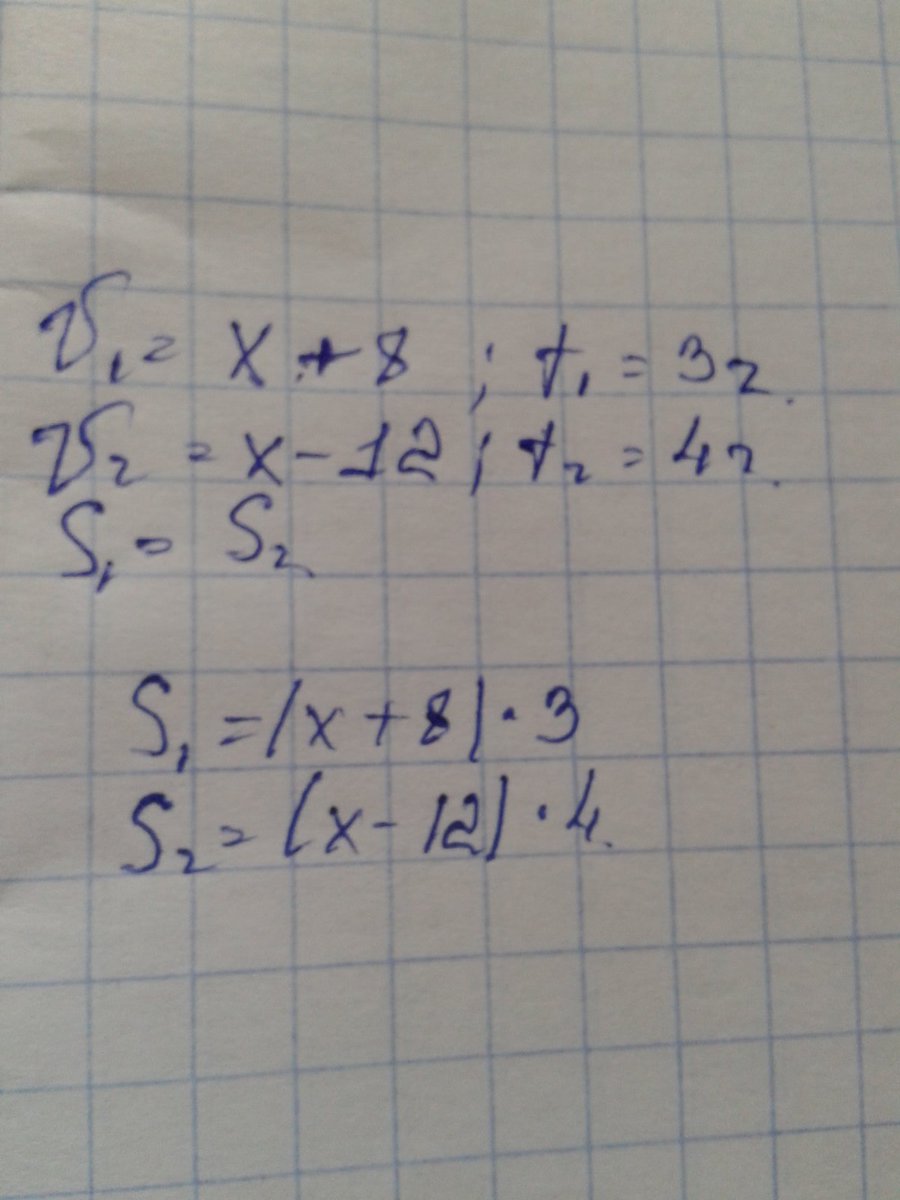 V₁ = x + 8 ; t₁ = 3г.
V₂ = x - 12 ; t₂ = 4г.
S₁ = S₂
S₁ = (x + 8) · 3
S₂ = (x - 12) · 4.